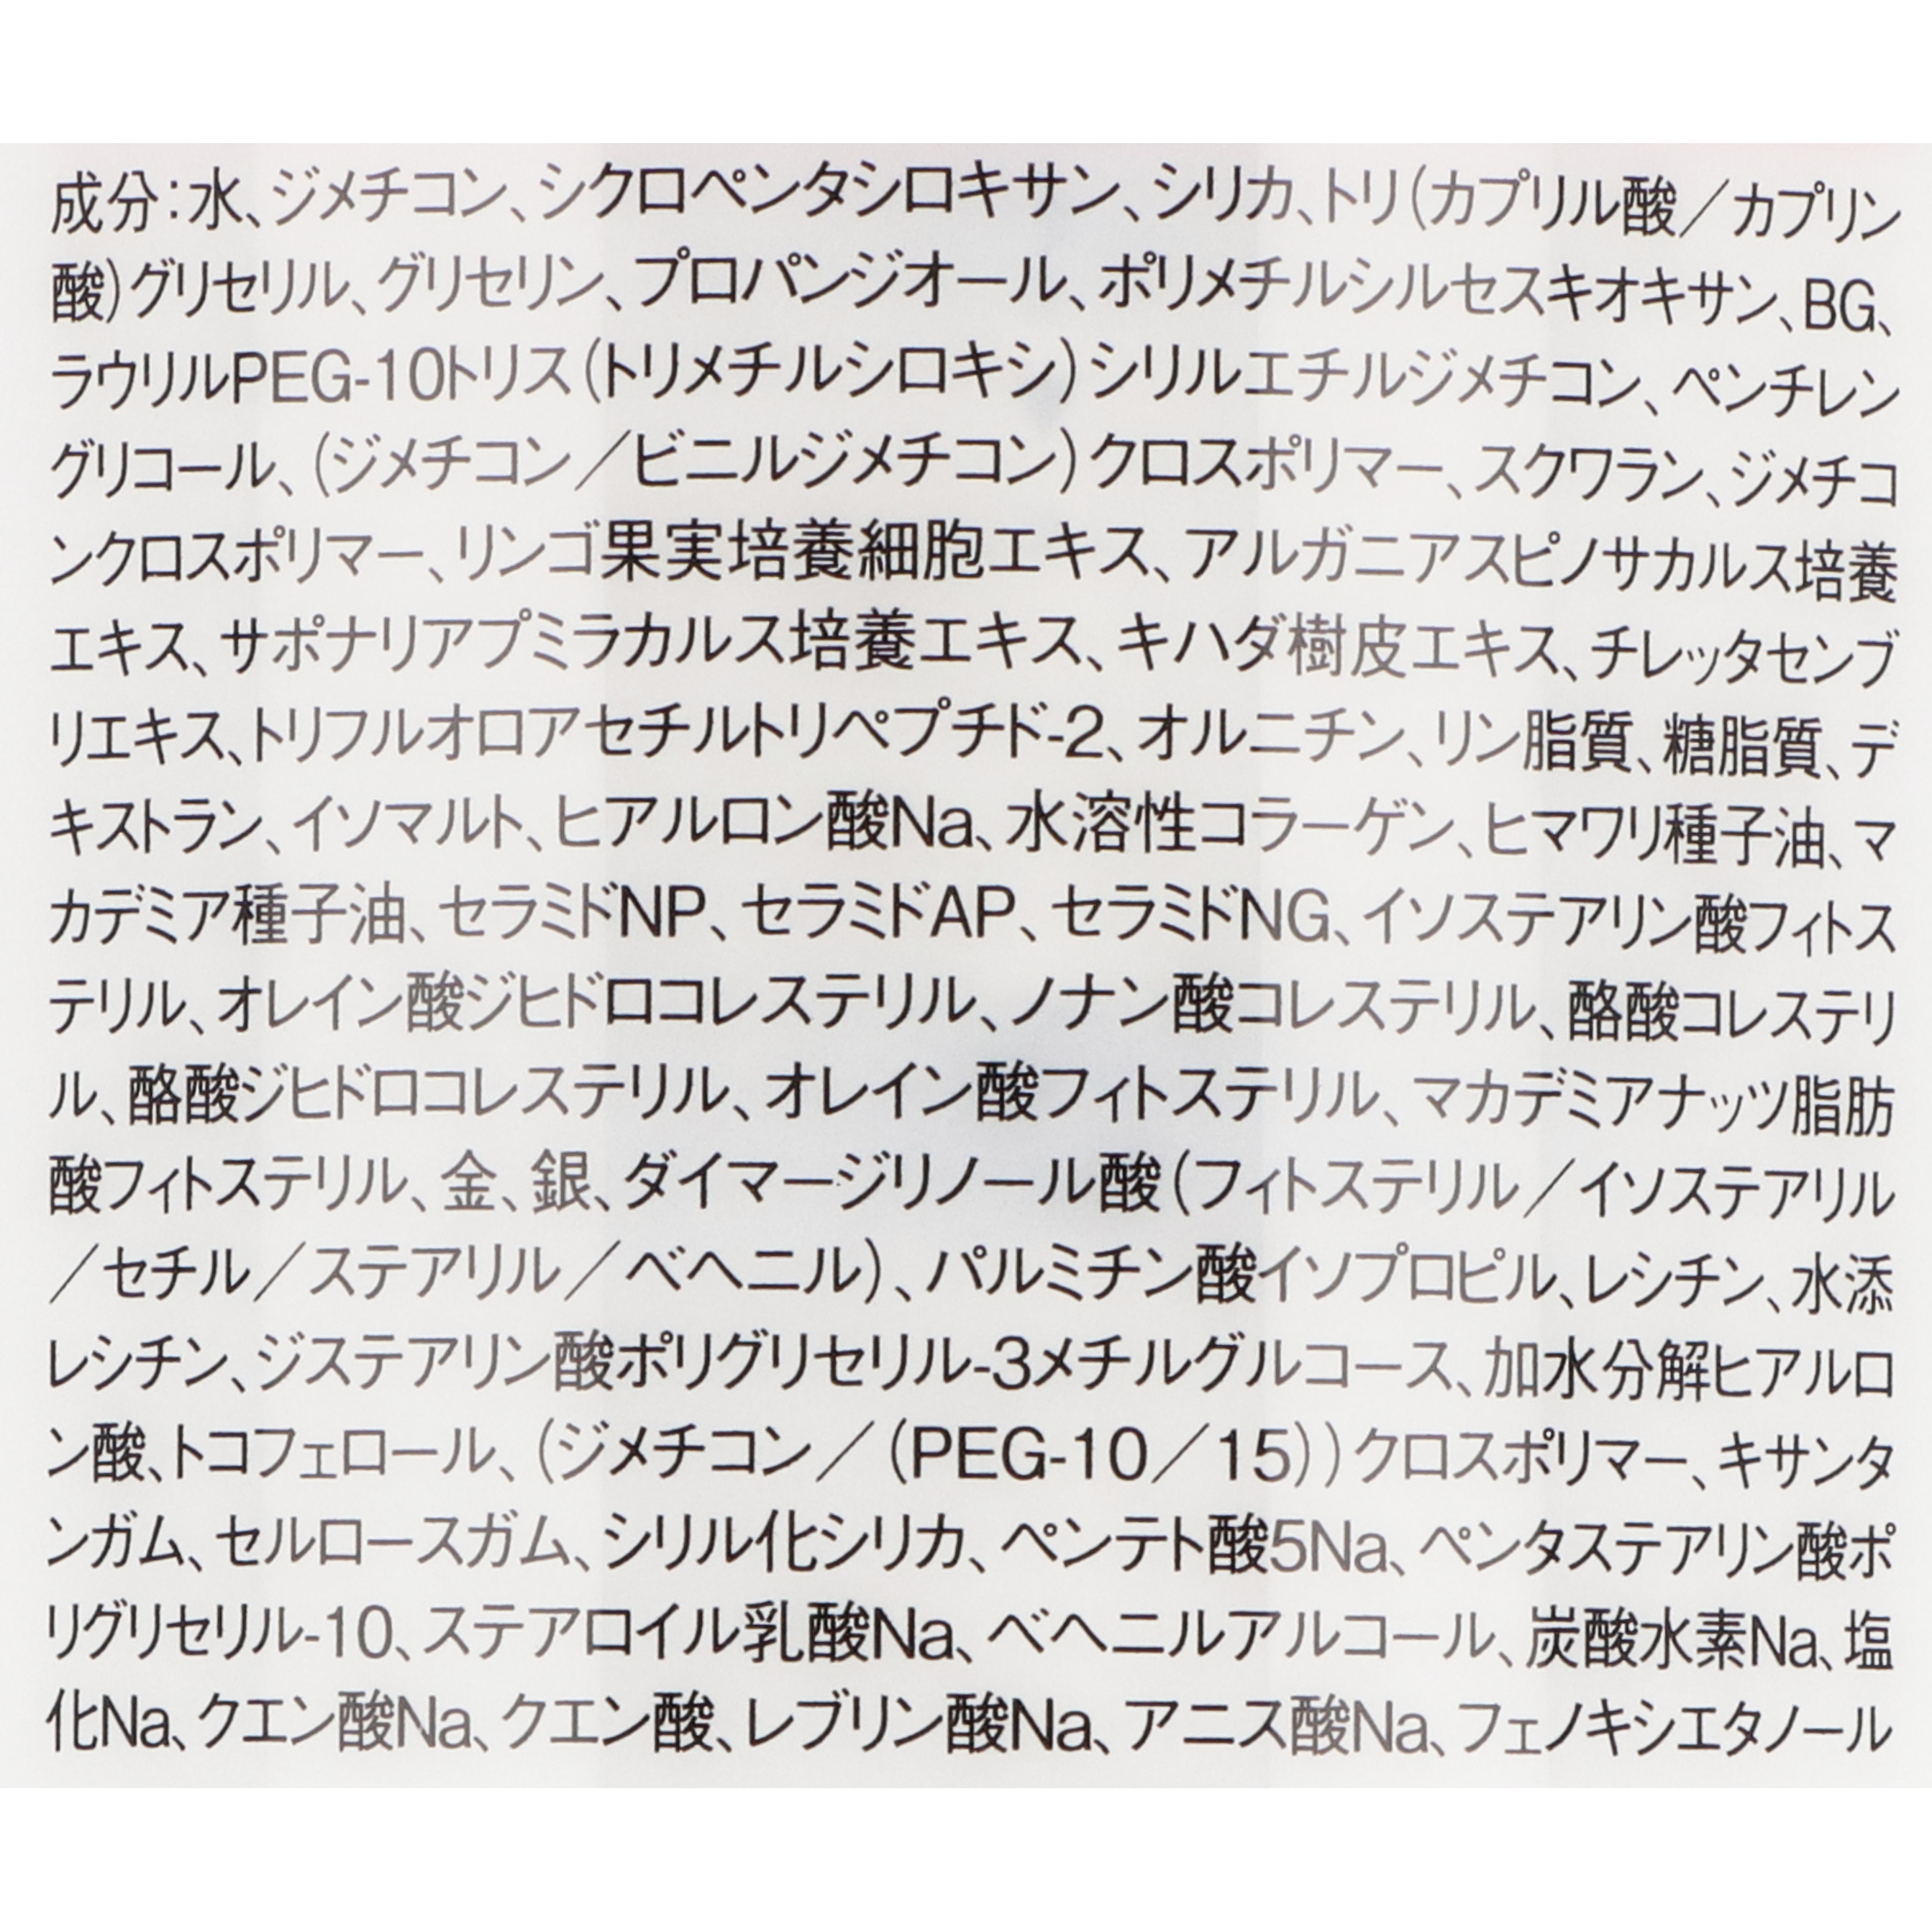 成分：水、ジメチコン、シクロペンタシロキサン、シリカ、トリ(カプリル酸／カプリン
酸)グリセリル、グリセリン、プロパンジオール、ポリメチルシルセスキオキサン、BG、
ラウリルPEG-10トリス(トリメチルシロキシ)シリルエチルジメチコン、ペンチレン
グリコール、(ジメチコン／ビニルジメチコン)クロスポリマー、スクワラン、ジメチコ
ンクロスポリマー、リンゴ果実培養細胞エキス、アルガニアスピノサカルス培養
エキス、サポナリアプミラカルス培養エキス、キハダ樹皮エキス、チレッタセンブ
リエキス、トリフルオロアセチルトリペプチド-2、オルニチン、リン脂質、糖脂質、デ
キストラン、イソマルト、ヒアルロン酸Na、水溶性コラーゲン、ヒマワリ種子油、マ
カデミア種子油、セラミドNP、セラミドAP、セラミドNG、イソステアリン酸フィトス
テリル、オレイン酸ジヒドロコレステリル、ノナン酸コレステリル、酪酸コレステリ
ル、酪酸ジヒドロコレステリル、オレイン酸フィトステリル、マカデミアナッツ脂肪
酸フィトステリル、金、銀、ダイマージリノール酸(フィトステリル／イソステアリル
／セチル／ステアリル／ベヘニル)、パルミチン酸イソプロピル、レシチン、水添
レシチン、ジステアリン酸ポリグリセリル-3メチルグルコース、加水分解ヒアルロ
ン酸、トコフェロール、(ジメチコン／(PEG-10／15))クロスポリマー、キサンタ
ンガム、セルロースガム、シリル化シリカ、ペンテト酸5Na、ペンタステアリン酸ポ
リグリセリル-10、ステアロイル乳酸Na、ベヘニルアルコール、炭酸水素Na、塩
化Na、クエン酸Na、クエン酸、レブリン酸Na、アニス酸Na、フェノキシエタノール